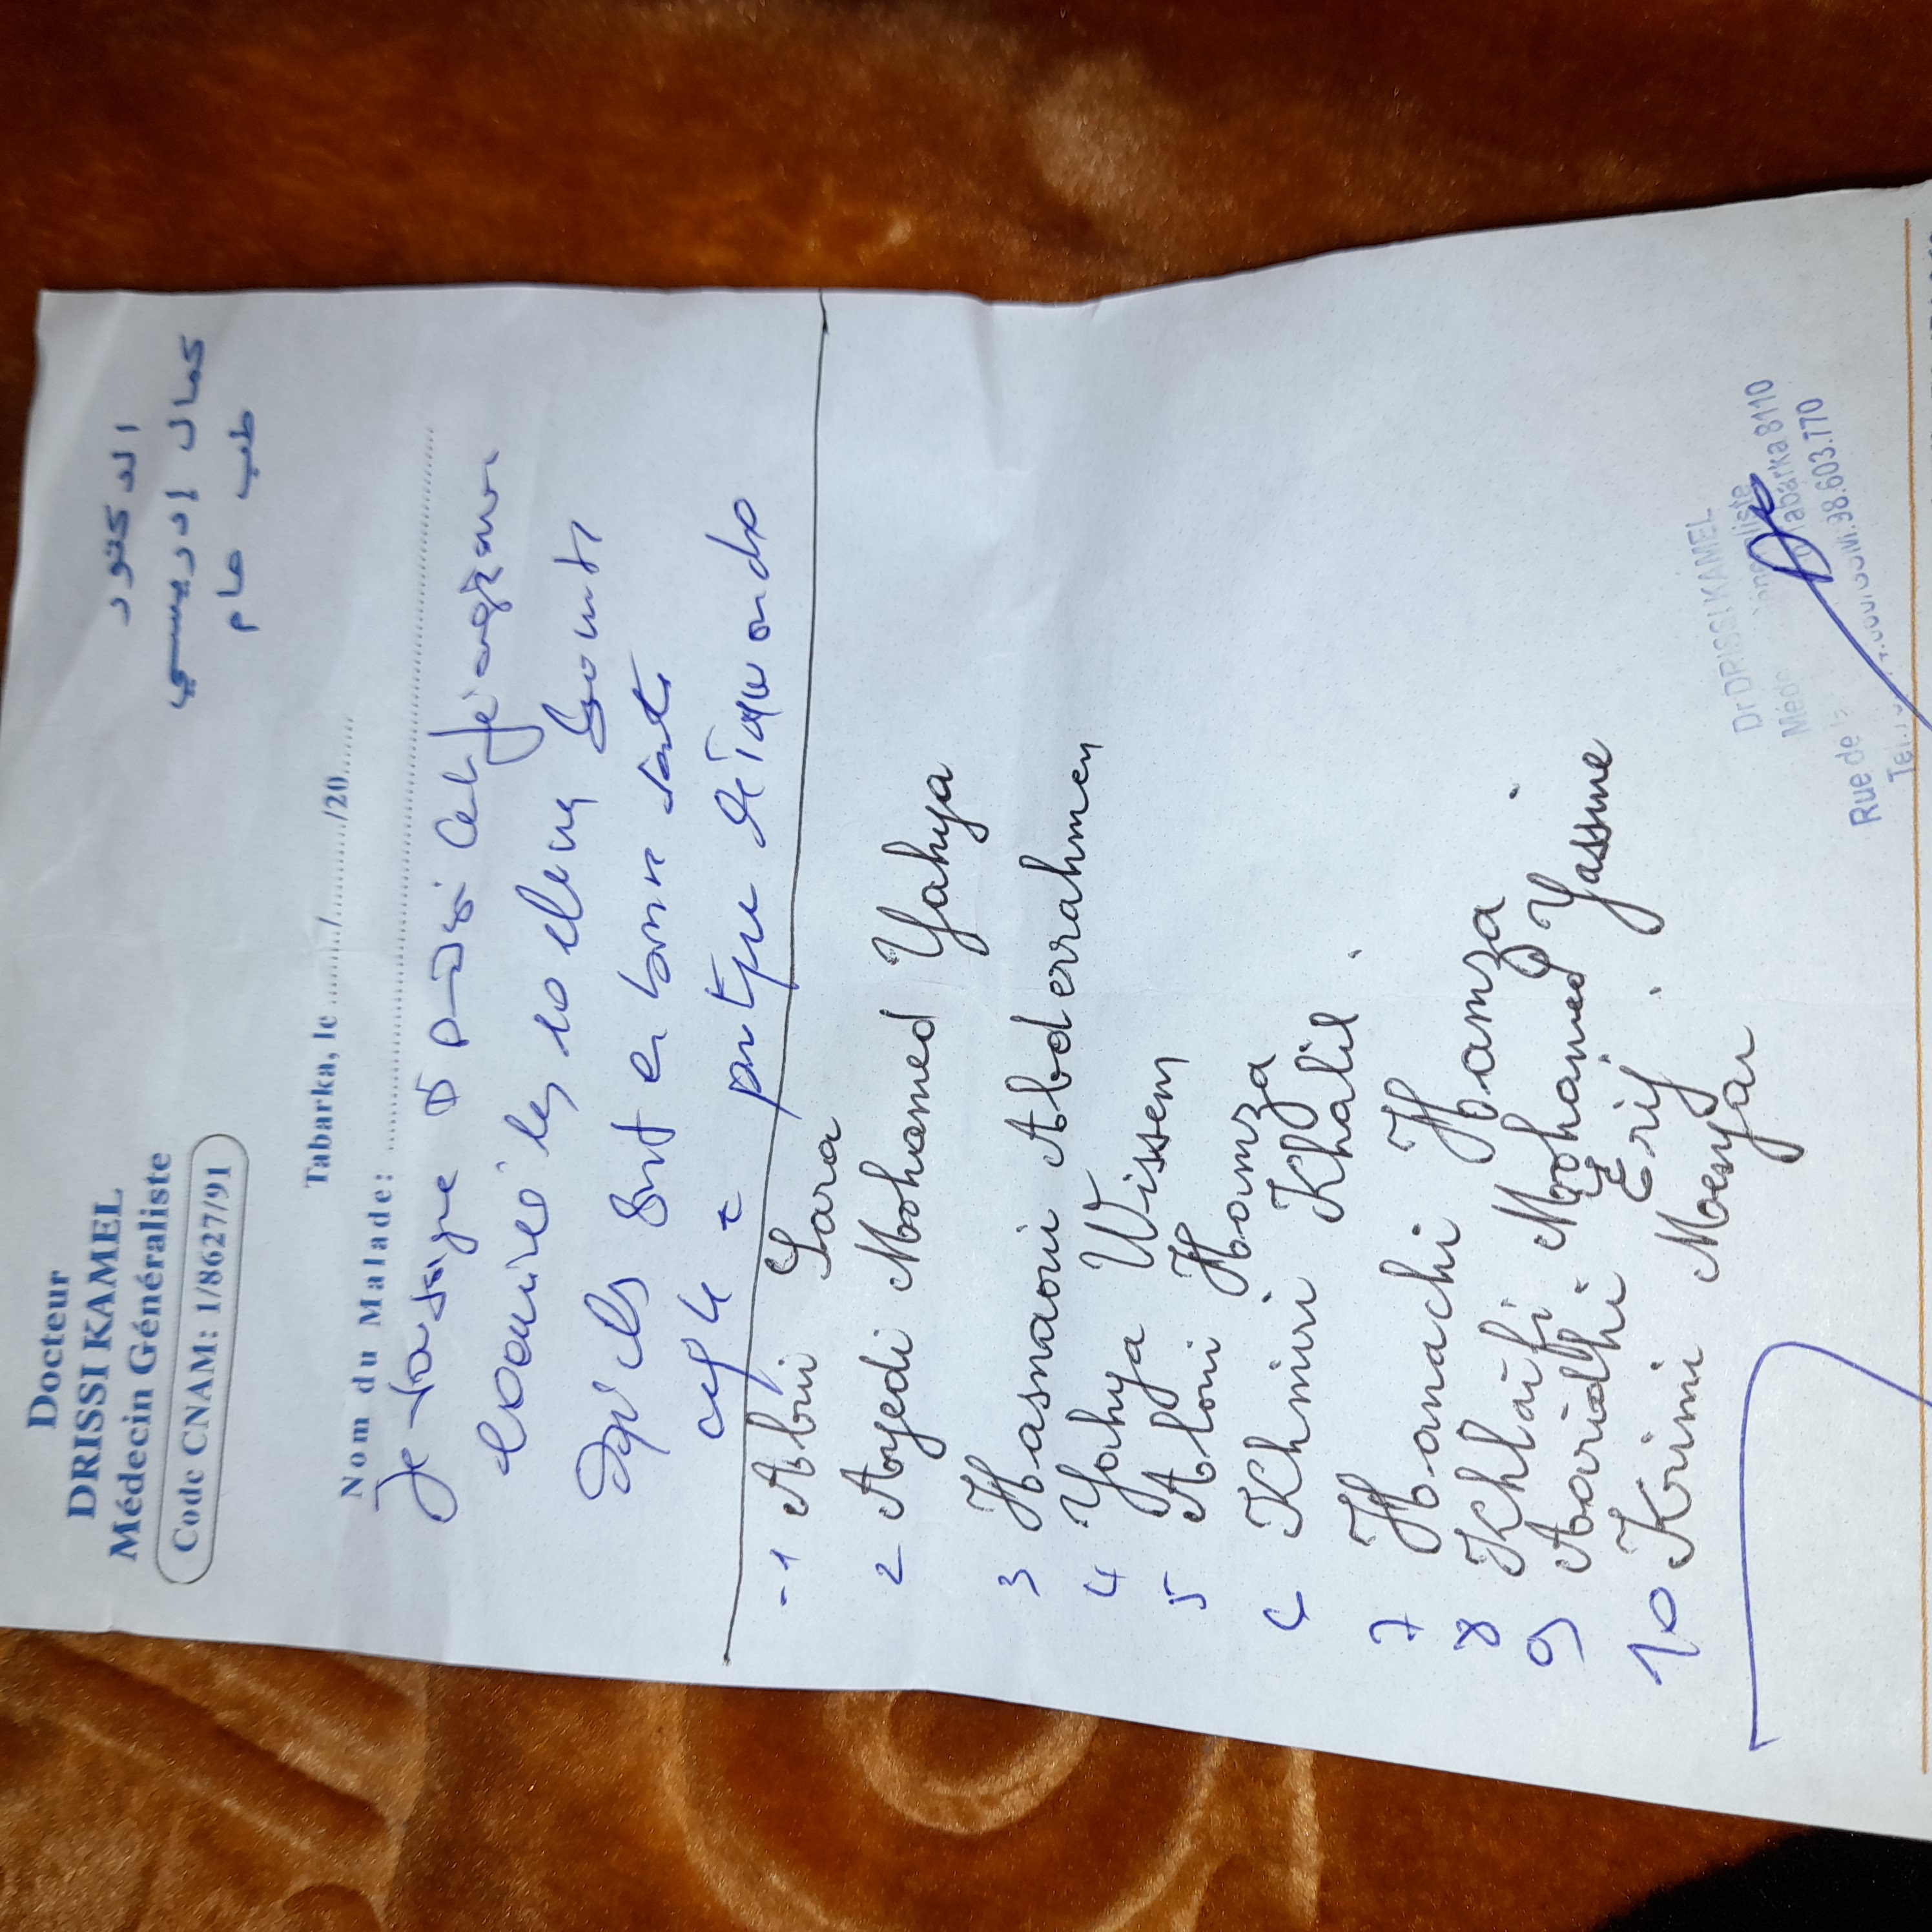 Docteur
DRISSI KAMEL
Médecin Généraliste
Code CNAM: 1/8627/91
الدكتور
كمال إدريسي
طب عام
Tabarka, le ......../......../20......
Nom du Malade: ........................................
Je soussigné Dr Drissi
examiné les 10 élèves
qu'ils sont en bonne santé
apte à pratiquer
- 1 Abiri Sara
2 Ayedi Mohamed Yahya
3 Hasnaoui Abderrahmen
4 Yahya Wissem
5 Aloui Hamza
6 Khmiri Khalil.
7 Hanachi Hamza.
8 Khlaifi Mohamed Yassine
9 Aaridhi Erij.
10 Krimi Meryar
Dr DRISSI KAMEL
Rue de Tabarka 8110
98.603.770